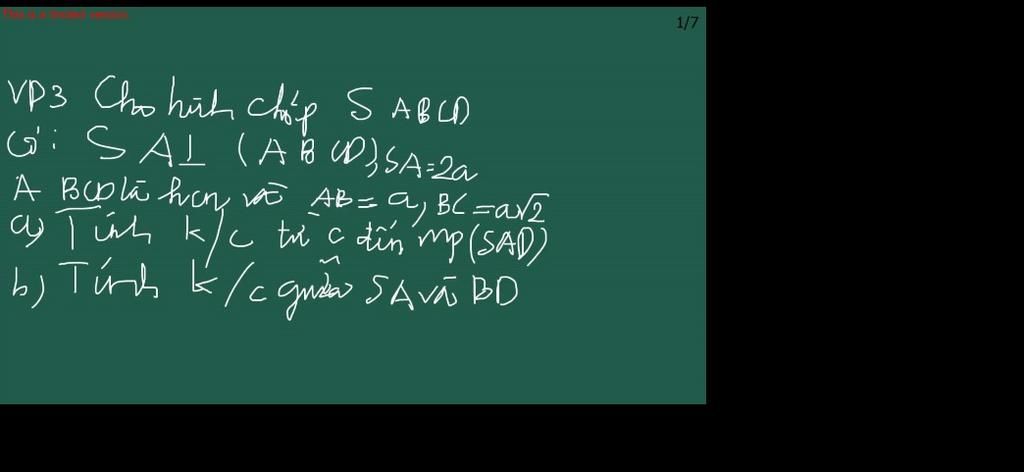 This is a trialed version
1/7
VD3 Cho hình chóp S ABCD
Có: SA⊥ (ABCD), SA=2a
A BCD là hcn và AB = a, BC = a√2
a) Tính k/c từ C đến mp(SAD)
b) Tính k/c giữa SA và BD